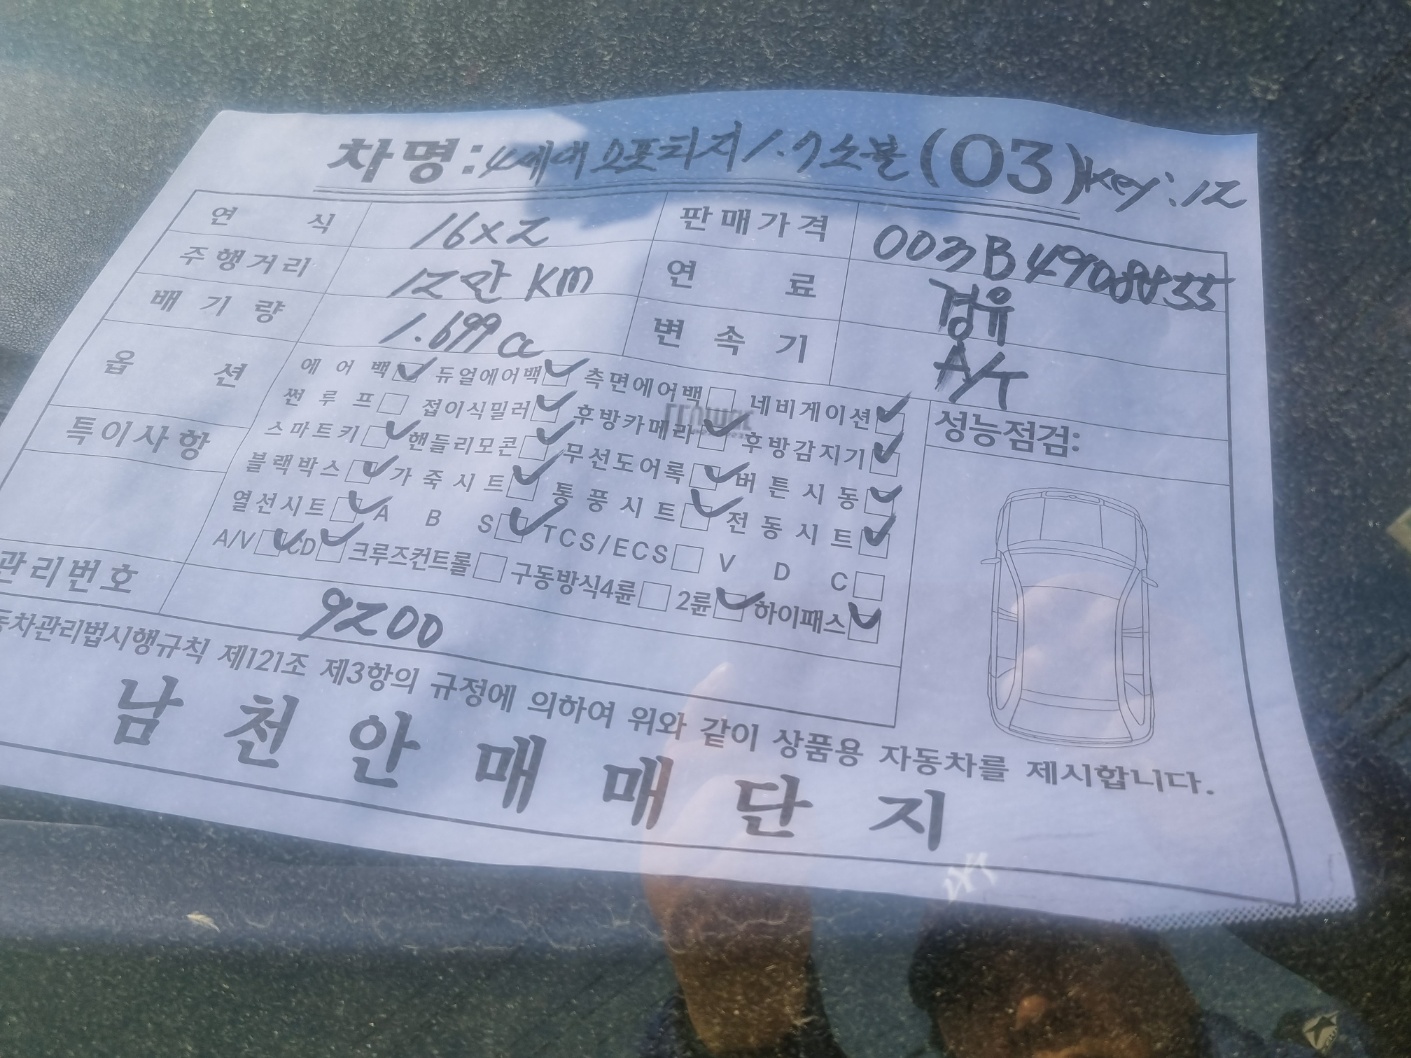 차명: 4세대 스포티지 1.7 (03) key:12
연식 16x2 판매가격 003B4908855
주행거리 12만 KM 연료 경유
배기량 1.699cc 변속기 A/T
옵션 에어백 듀얼에어백 측면에어백 네비게이션
썬루프 접이식밀러 후방카메라 후방감지기
스마트키 핸들리모콘 무선도어록 버튼시동
블랙박스 가죽시트 통풍시트 전동시트
열선시트 ABS TCS/ECS VDC
A/V CD 크루즈컨트롤 구동방식4륜 2륜 하이패스
특이사항
성능점검:
관리번호 9200
동차관리법시행규칙 제121조 제3항의 규정에 의하여 위와 같이 상품용 자동차를 제시합니다.
남천안매매단지